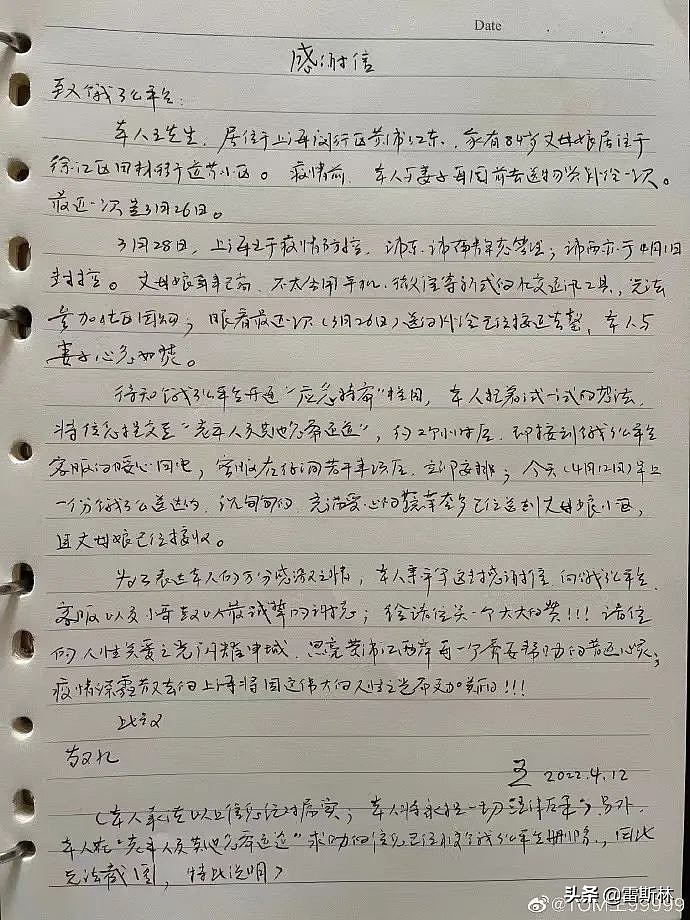 Date
感谢信
致饿了么平台:
本人王先生,居住于上海闵行区黄浦江东,家有84岁丈母娘居住于
徐汇区田林街道某小区。疫情前,本人与妻子每周前去送物资外给一次。
最近一次是3月26日。
3月28日,上海由于疫情防控,浦东、浦南静态管理;浦西亦于4月1日
封控。丈母娘年事已高,不太会用手机、微信等形式的社交通讯工具,无法
参加社区团购;眼看最近一次(3月26日)送的补给已经接近告罄,本人与
妻子心急如焚。
得知饿了么平台开通"应急特需"栏目,本人抱着试一试的想法,
将信息提交至"老年人及其他急需通道",约2个小时后,即接到饿了么平台
客服的暖心回电,客服在仔细询问若干事项后,立即安排;今天(4月12日)早上
一份饿了么送达的、沉甸甸的、充满爱心的蔬菜套餐已经送到丈母娘小区,
且丈母娘已经接收。
为了表达本人的万分感激之情,本人亲手写这封感谢信,向饿了么平台、
客服以及小哥致以最诚挚的谢意;给诸位点一个大大的赞!!!诸位
的人性关爱之光闪耀申城,照亮黄浦江两岸每一个需要帮助的普通心灵;
疫情阴霾散去的上海将因这伟大的人性之光而更加美丽!!!
此致
敬礼
王 2022.4.12
(本人承诺以上信息绝对属实;本人将承担一切法律后果;另外,
本人在"老年人及其他急需通道"求助的信息已经被饿了么平台删除,因此
无法截图,特此说明)
头条 @雷斯林
@TOM王99999